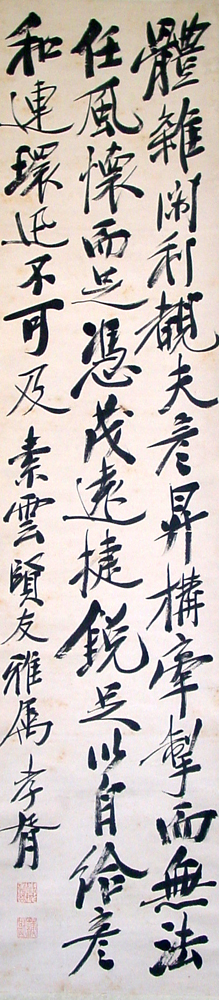 體雜利夫彥昇構牽掣而無法
任風懷而足憑茂遠捷銳足以自給彥
和連環迅不可及 素雲賢友雅屬 孝胥